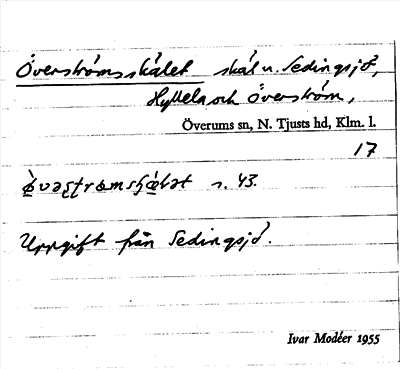 Överströmsskälet skäl u. Sedingsjö,
Hyllela och Överström,
Överums sn, N. Tjusts hd, Klm. l.
17
n. 43.
Uppgift från Sedingsjö.
Ivar Modéer 1955